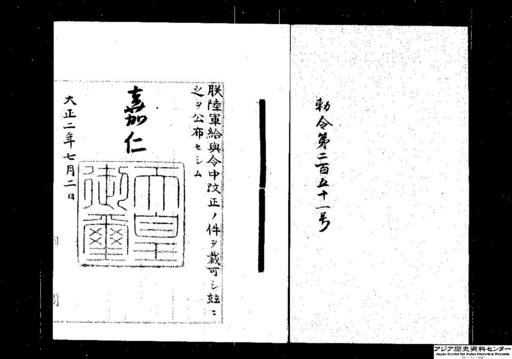 勅令第二百五十一号
朕陸軍給與令中改正ノ件ヲ裁可シ茲ニ
之ヲ公布セシム
嘉仁
天皇
御璽
大正二年七月二日
アジア歴史資料センター
Japan Center for Asian Historical Records